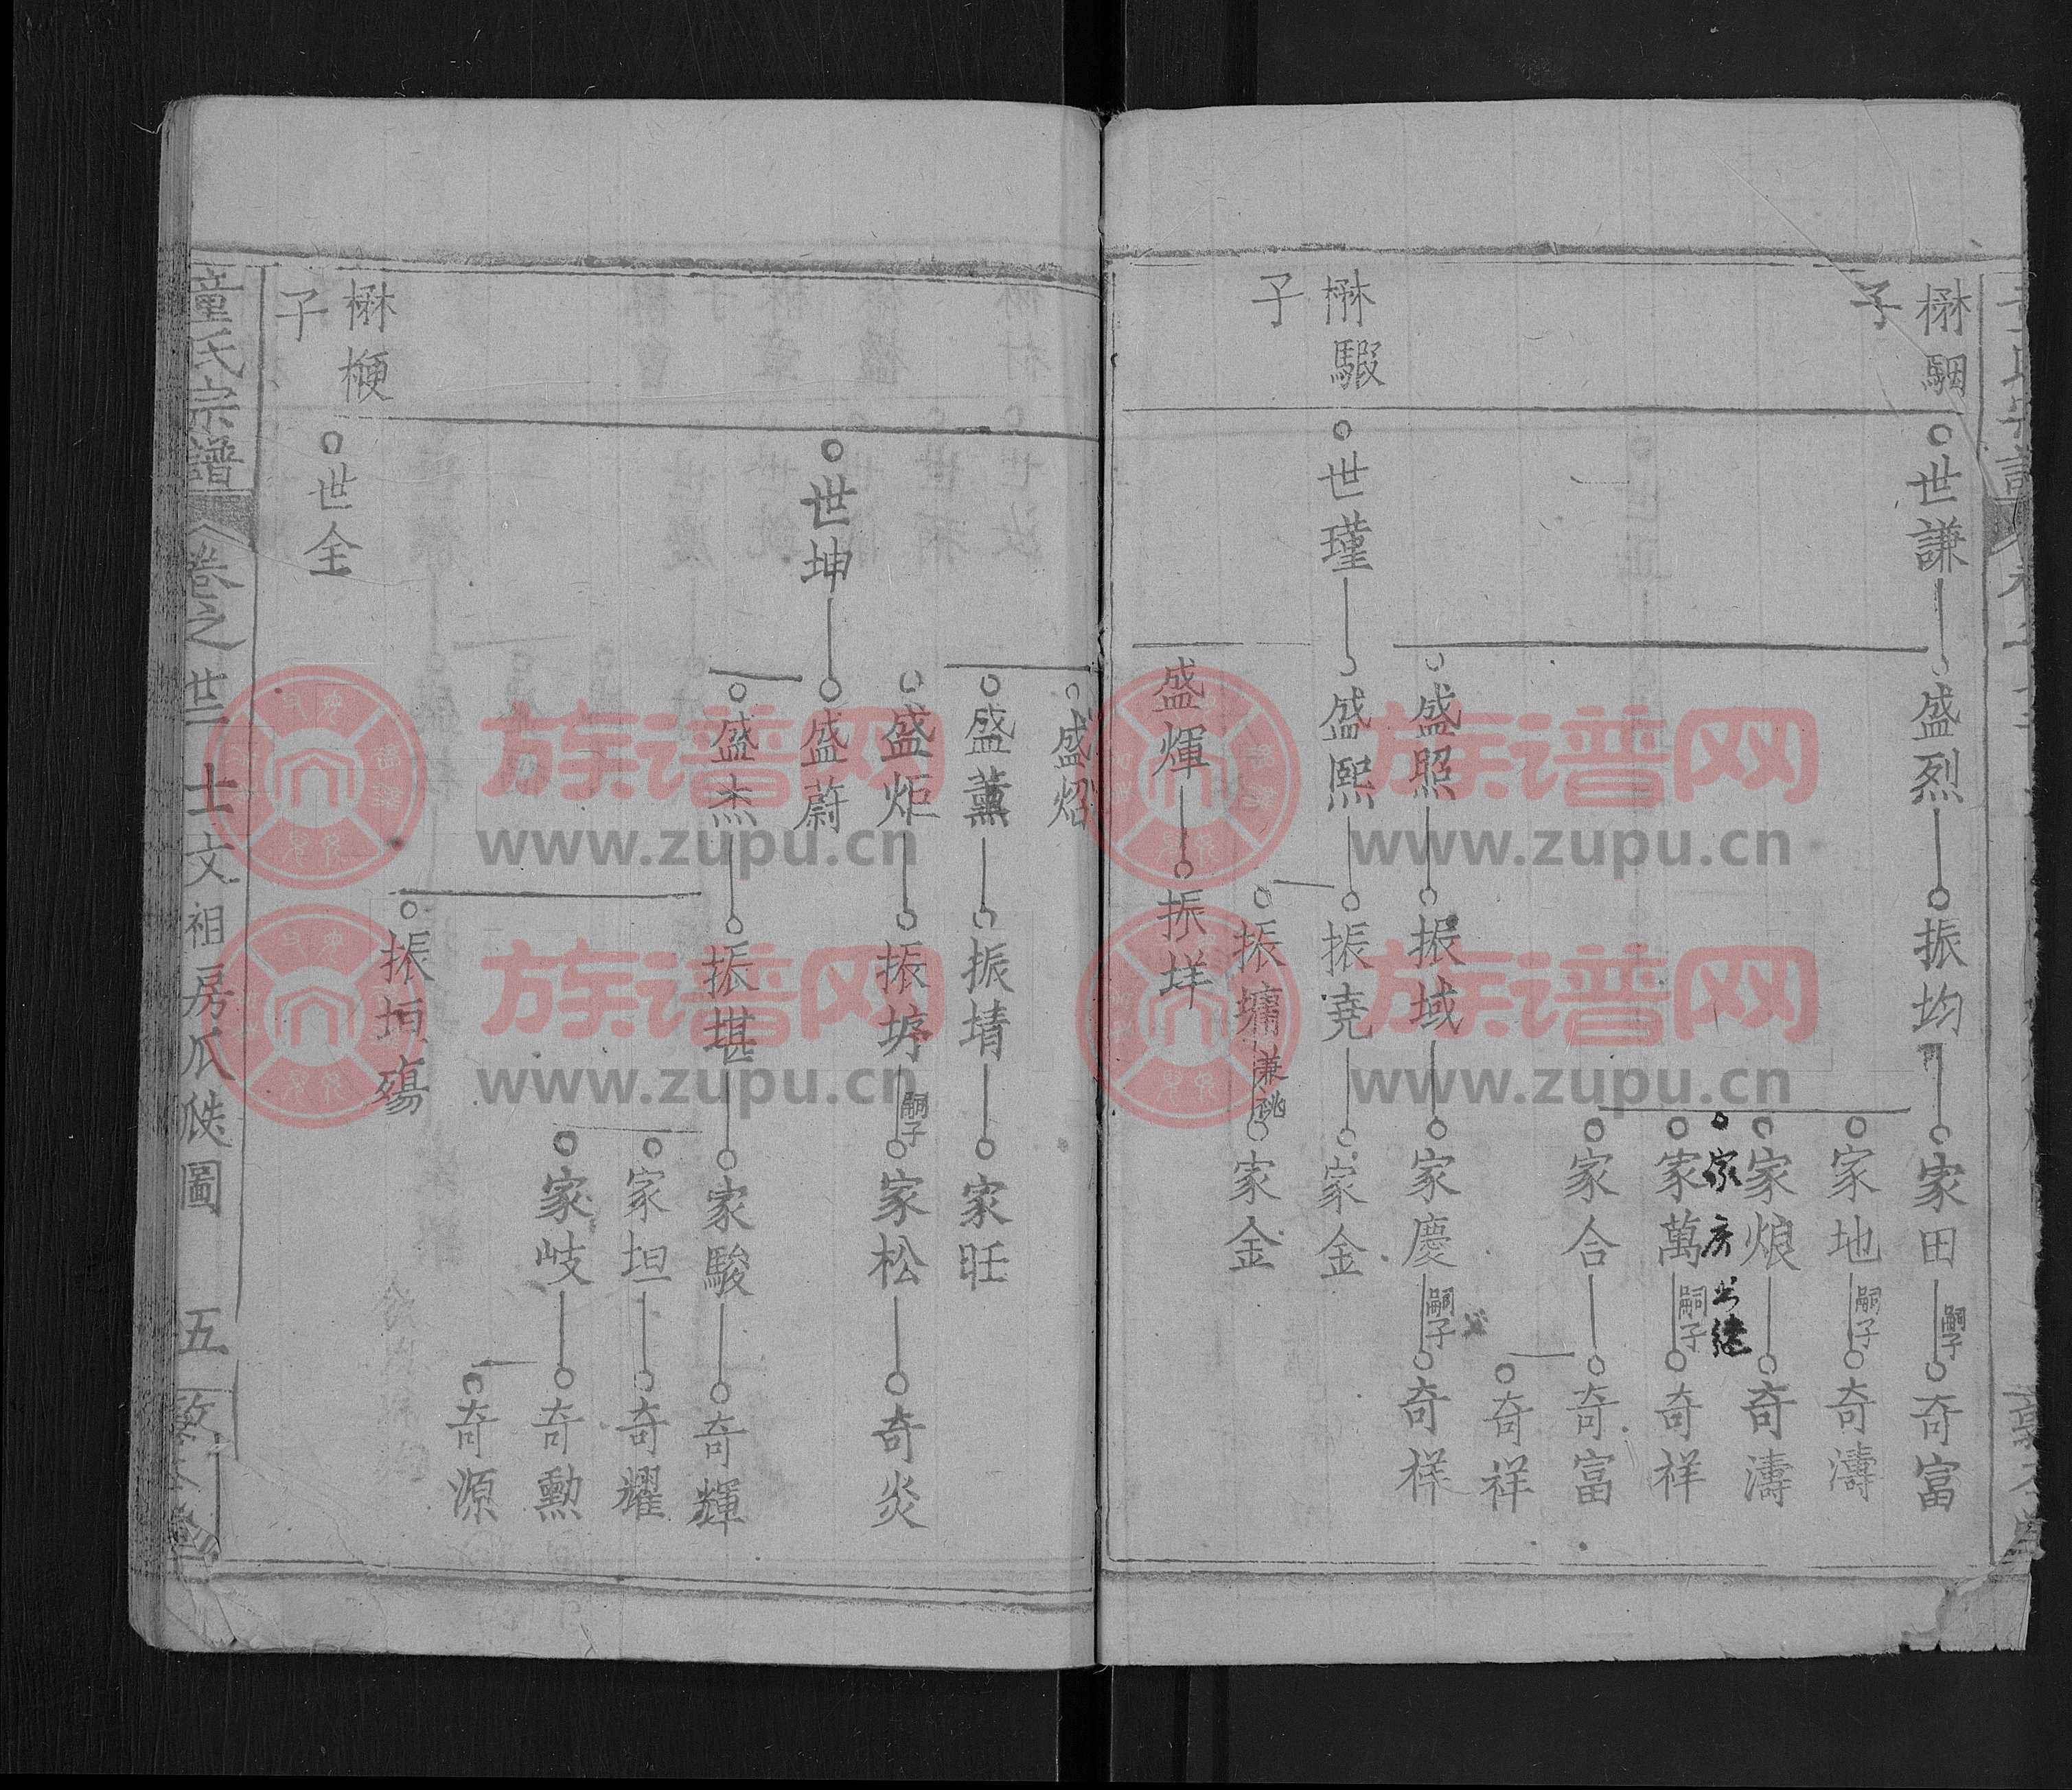 楙駰
子
世謙
盛烈
振均
家田
嗣子
奇富
家地
嗣子
奇濤
家烺
奇濤
家房
家萬
嗣子
奇祥
家合
奇富
奇祥
盛照
振域
家慶
嗣子
奇祥
楙騢
子
世瑾
盛熙
振堯
家金
振墉兼祧
家金
盛煇
振垟
盛炤
盛薰
振堉
家旺
盛炬
嗣子
家松
奇炎
世坤
盛蔚
盛杰
振堪
家駿
奇輝
家坦
奇耀
家岐
奇勳
奇源
振垣殤
楙梗
子
世全
童氏宗譜
卷之
世三
士文祖房瓜瓞圖
五
族谱网
www.zupu.cn
族谱网
www.zupu.cn
族谱网
www.zupu.cn
族谱网
www.zupu.cn